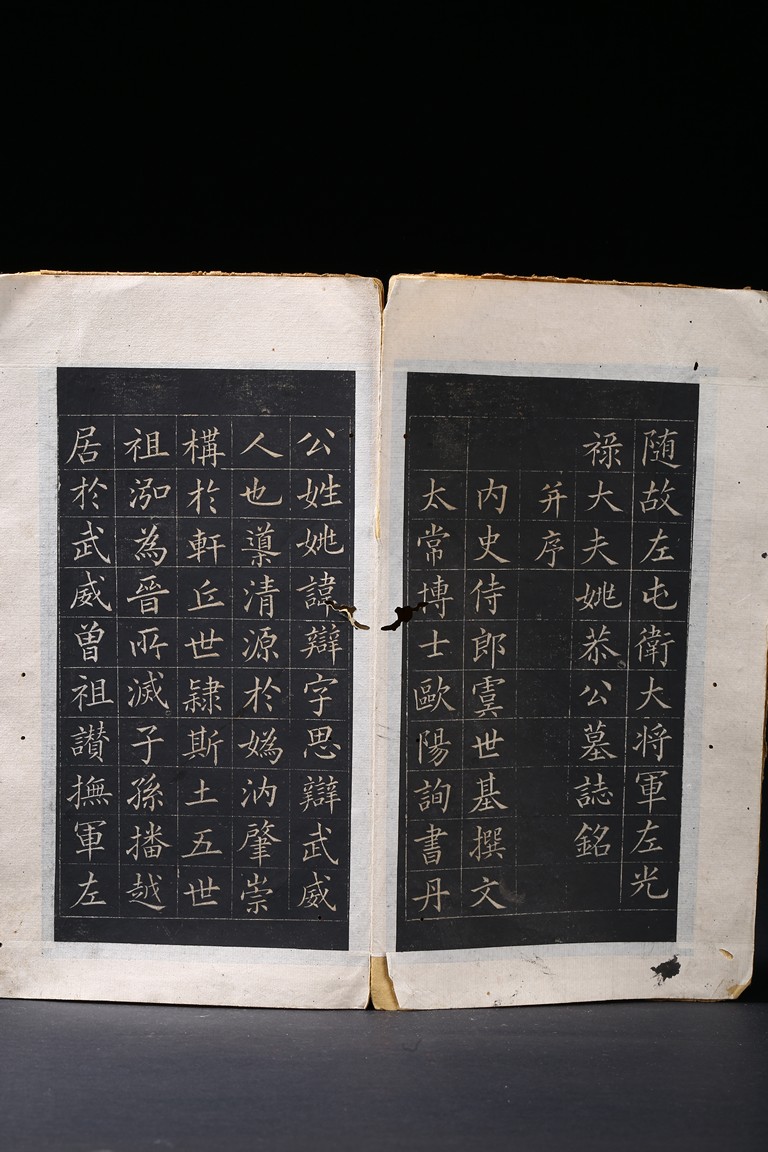 随故左屯衛大将軍左光
禄大夫姚恭公墓誌銘
并序
内史侍郎虞世基撰文
太常博士歐陽詢書丹
公姓姚諱辯字思辯武威
人也導清源於嬀汭肇崇
構於軒丘世隸斯土五世
祖泓為晉所滅子孫播越
居於武威曾祖讃撫軍左